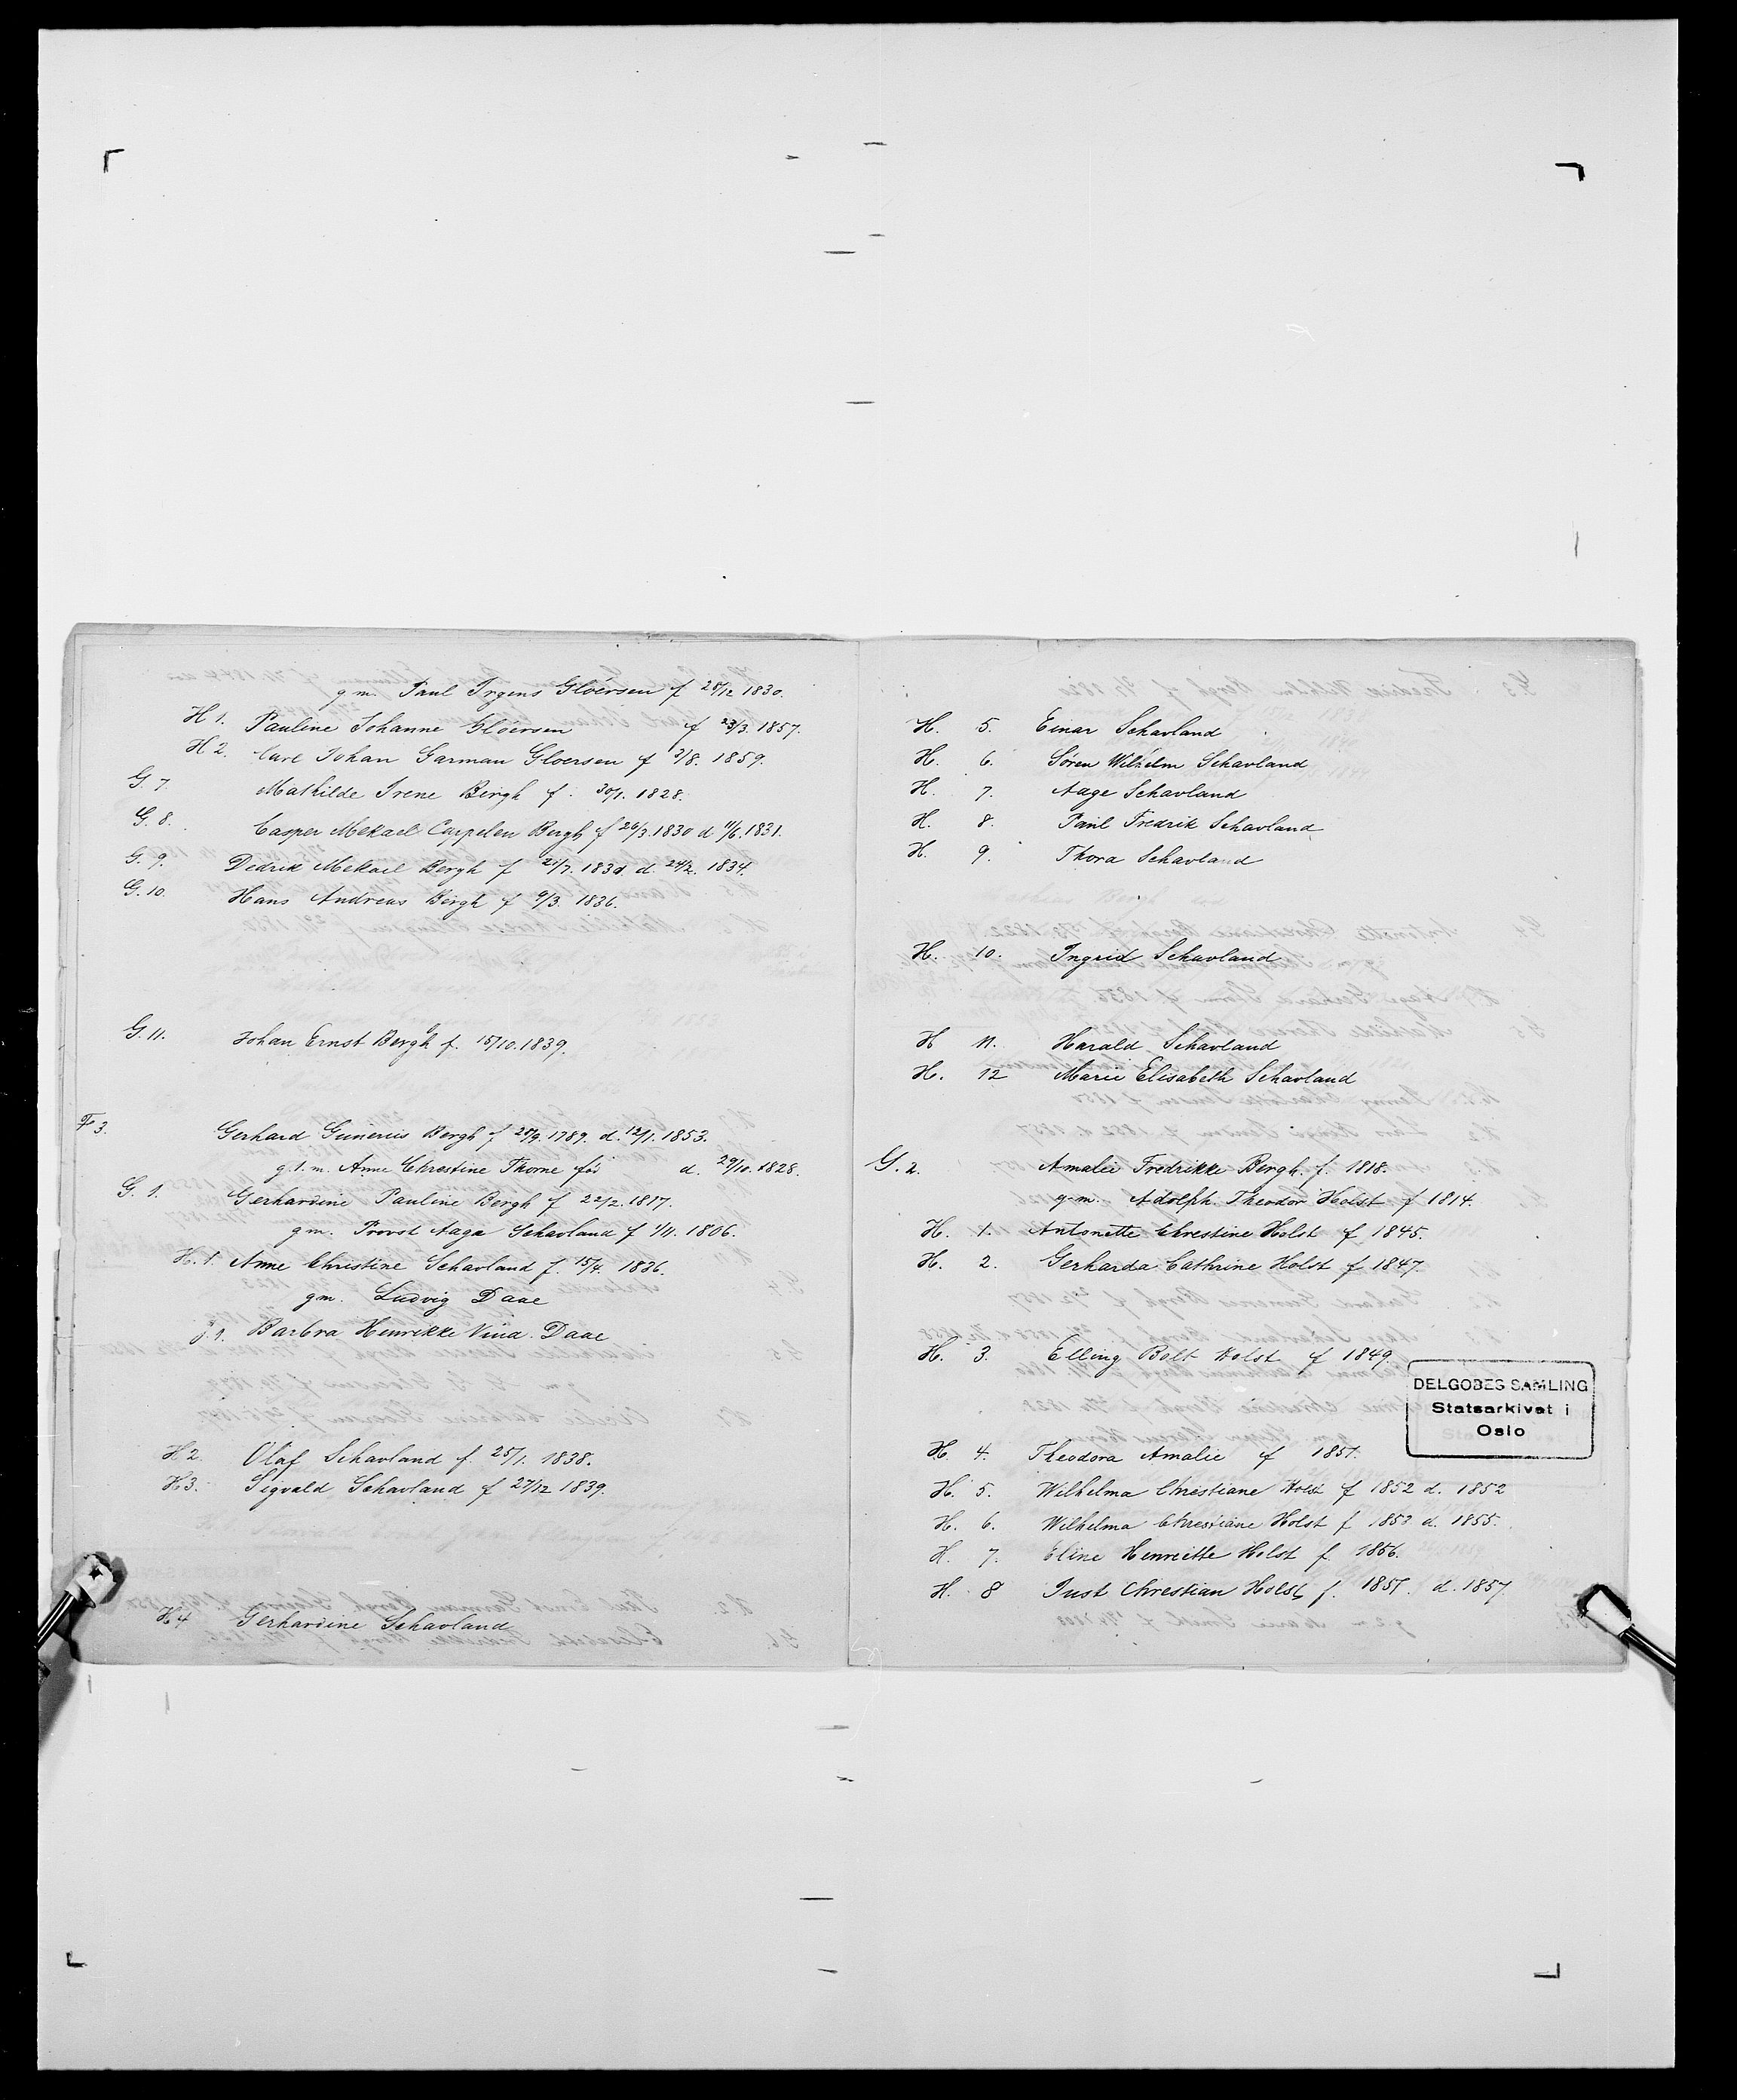 g m. Paul Irgens Gloersen f 28/12 1830.
H 1. Pauline Johanne Gloersen f 23/3. 1857.
H 2. Carl Johan Garman Gloersen f 3/8. 1859.
G. 7. Mathilde Irene Bergh f. 30/1. 1828.
G. 8. Casper Mekael Cappelen Bergh f 26/3. 1830 d 11/6. 1831.
G. 9. Dedrik Mekael Bergh f 21/7. 1831. d. 24/2. 1834.
G. 10. Hans Andreas Bergh f 9/3. 1836.
G. 11. Johan Ernst Bergh f. 15/10. 1839.
F 3. Gerhard Gunerius Bergh f 28/9. 1789. d. 12/1. 1853.
g. 1. m. Anne Chrestine Thorne d. 29/10. 1828.
G. 1. Gerhardine Pauline Bergh f 22/2. 1817.
gm. Provst Aage Schavland f 1/11. 1806.
H. 1. Anne Christine Schavland f. 15/4. 1836.
gm. Ludvig Daae
J. 1. Barbra Henrikke Vind Daae
H 2. Olaf Schavland f. 25/1. 1838.
H 3. Sigvald Schavland f 27/12 1839.
H 4 Gerhardine Schavland
H. 5. Einar Schavland
H. 6. Søren Wilhelm Schavland
H. 7. Aage Schavland
H. 8. Paul Fredrik Schavland
H. 9. Thora Schavland
H. 10. Ingrid Schavland
H 11. Harald Schavland
H. 12 Marie Elisabeth Schavland
G. 2. Amalie Fredrikke Bergh. f. 1818.
g. m. Adolph Theodor Holst f 1814.
H. 1. Antonette Chrestine Holst f 1845.
H. 2. Gerharda Cathrine Holst f 1847.
H. 3. Elling Bolt Holst f 1849.
DELGOBES SAMLING
Statsarkivet i
Oslo
H. 4. Theodora Amalie f 1851.
H. 5. Wilhelma Chrestiane Holst f 1852 d. 1852
H. 6. Wilhelma Chrestiane Holst f 1853 d. 1855.
H. 7. Eline Henriette Holst f. 1856.
H. 8 Just Chrestian Holst f. 1857. d. 1857